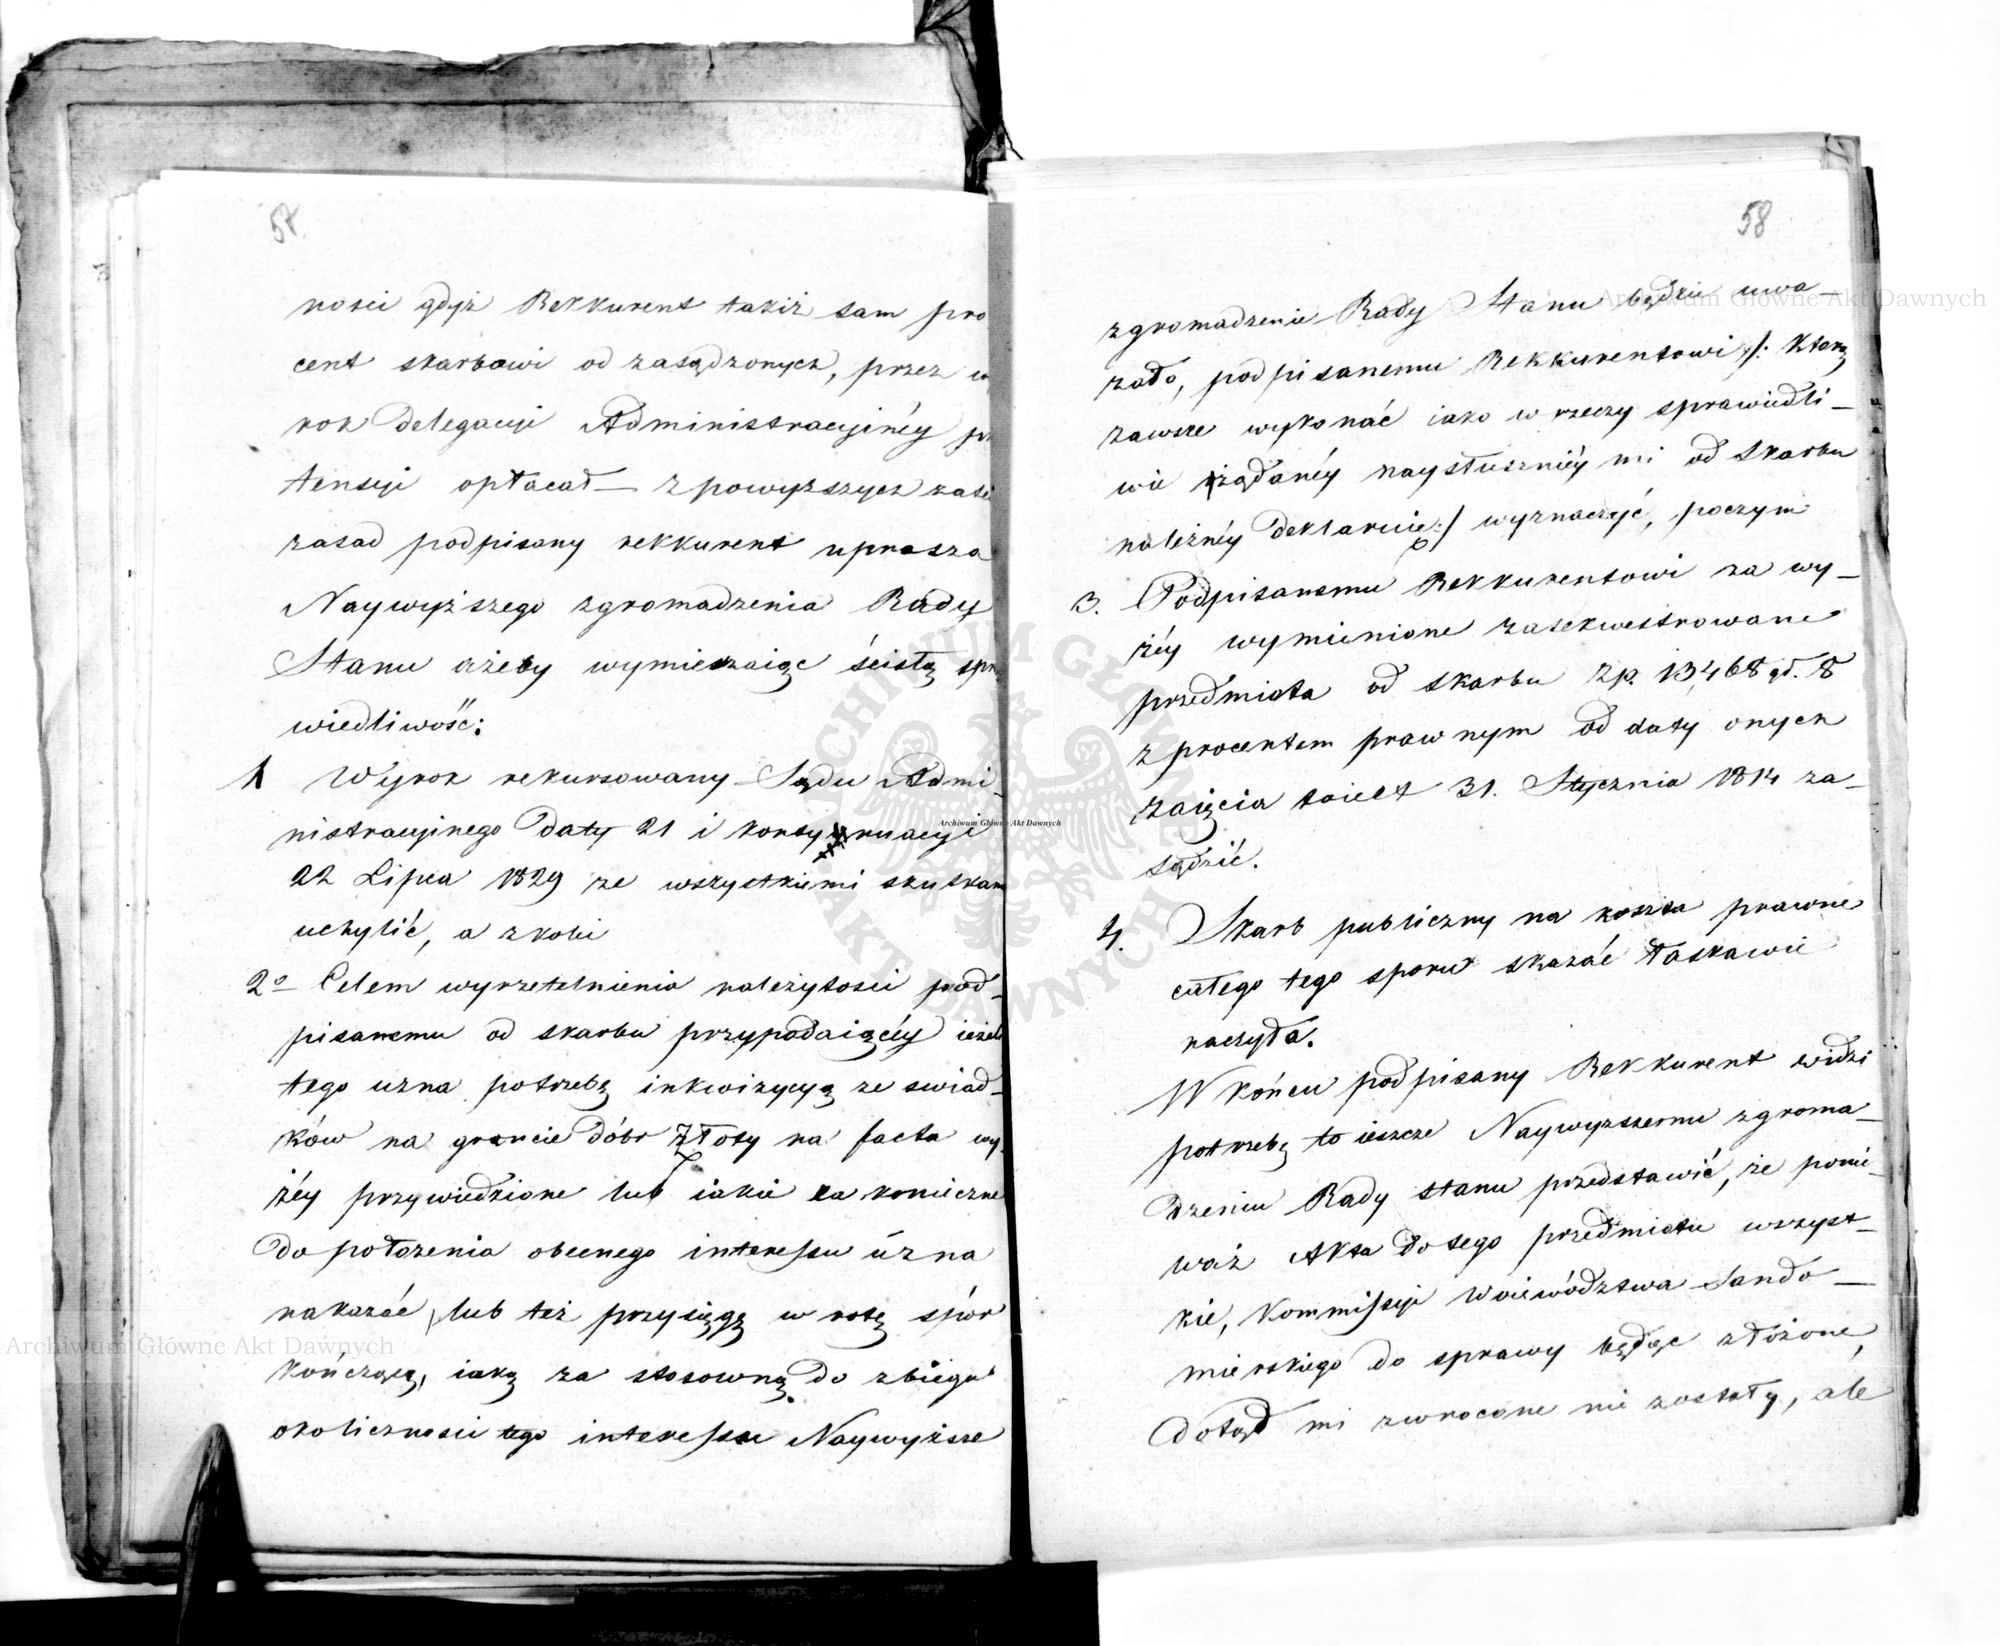 57.
ności gdyż Rekkurent takiż sam pro
cent skarbowi od zasądzonych, przez w
rok Delegacyi Administracyinéy p
tensyi opłacał — z powyższych zaś
zasad podpisany rekkurent uprasza
Naywyższego zgromadzenia Rady
Stanu ażeby wymierzaiąc ścisłą spra
wiedliwość:
1 Wyrok rekursowany Sądu Admi_
nistracyjnego Daty 21 i kontynuacyi
22 Lipca 1829 ze wszystkiemi skutkam
uchylić, a z kolei
2o Celem wyrzetelnienia należytości pod_
pisanemu od skarbu przypadaiącéy ieżeli
tego uzna potrzebę inkwizycyą ze swiad_
ków na gruncie Dóbr Złoty na facta wy
żéy przywiedzione lub iakie za konieczne
do położenia obecnego interessu uzna
nakazać, lub też przysięgę w rotę spór
kończącą, iaką za stosowną do zbiegu
okoliczności tego interessu Naywyższe
58
zgromadzenie Rady Stanu będzie uwa_
żało, podpisanemu Rekkurentowi /: którą
zawsze wykonać iako w rzeczy sprawiedli_
wie żądanéy naysłusznéy mi od Skarbu
należnéy deklaruie :/ wyznaczyć, poczym
3. Podpisanemu Rekkurentowi za wy_
żéy wymienione zasekwestrowane
przedmiota od skarbu zp. 13,468 gr. 8
z procentem prawnym od daty onych
zaięcia toiest 31. Stycznia 1814 za_
sądzić.
4. Skarb publiczny na koszta prawne
całego tego sporu skazać łaskawie
raczyła.
W końcu podpisany Rekkurent widzi
potrzebę to ieszcze Naywyzszemu zgroma_
dzeniu Rady stanu przedstawić, że ponie_
waż Akta do tego przedmiotu wszyst_
kie, Kommissyi Woiewództwa Sando_
mierskiego do sprawy będąc złożone,
dotąd mi zwrocone nie zostały, ale
Archiwum Główne Akt Dawnych
Archiwum Główne Akt Dawnych
Archiwum Główne Akt Dawnych
ARCHIWUM GŁÓWNE AKT DAWNYCH